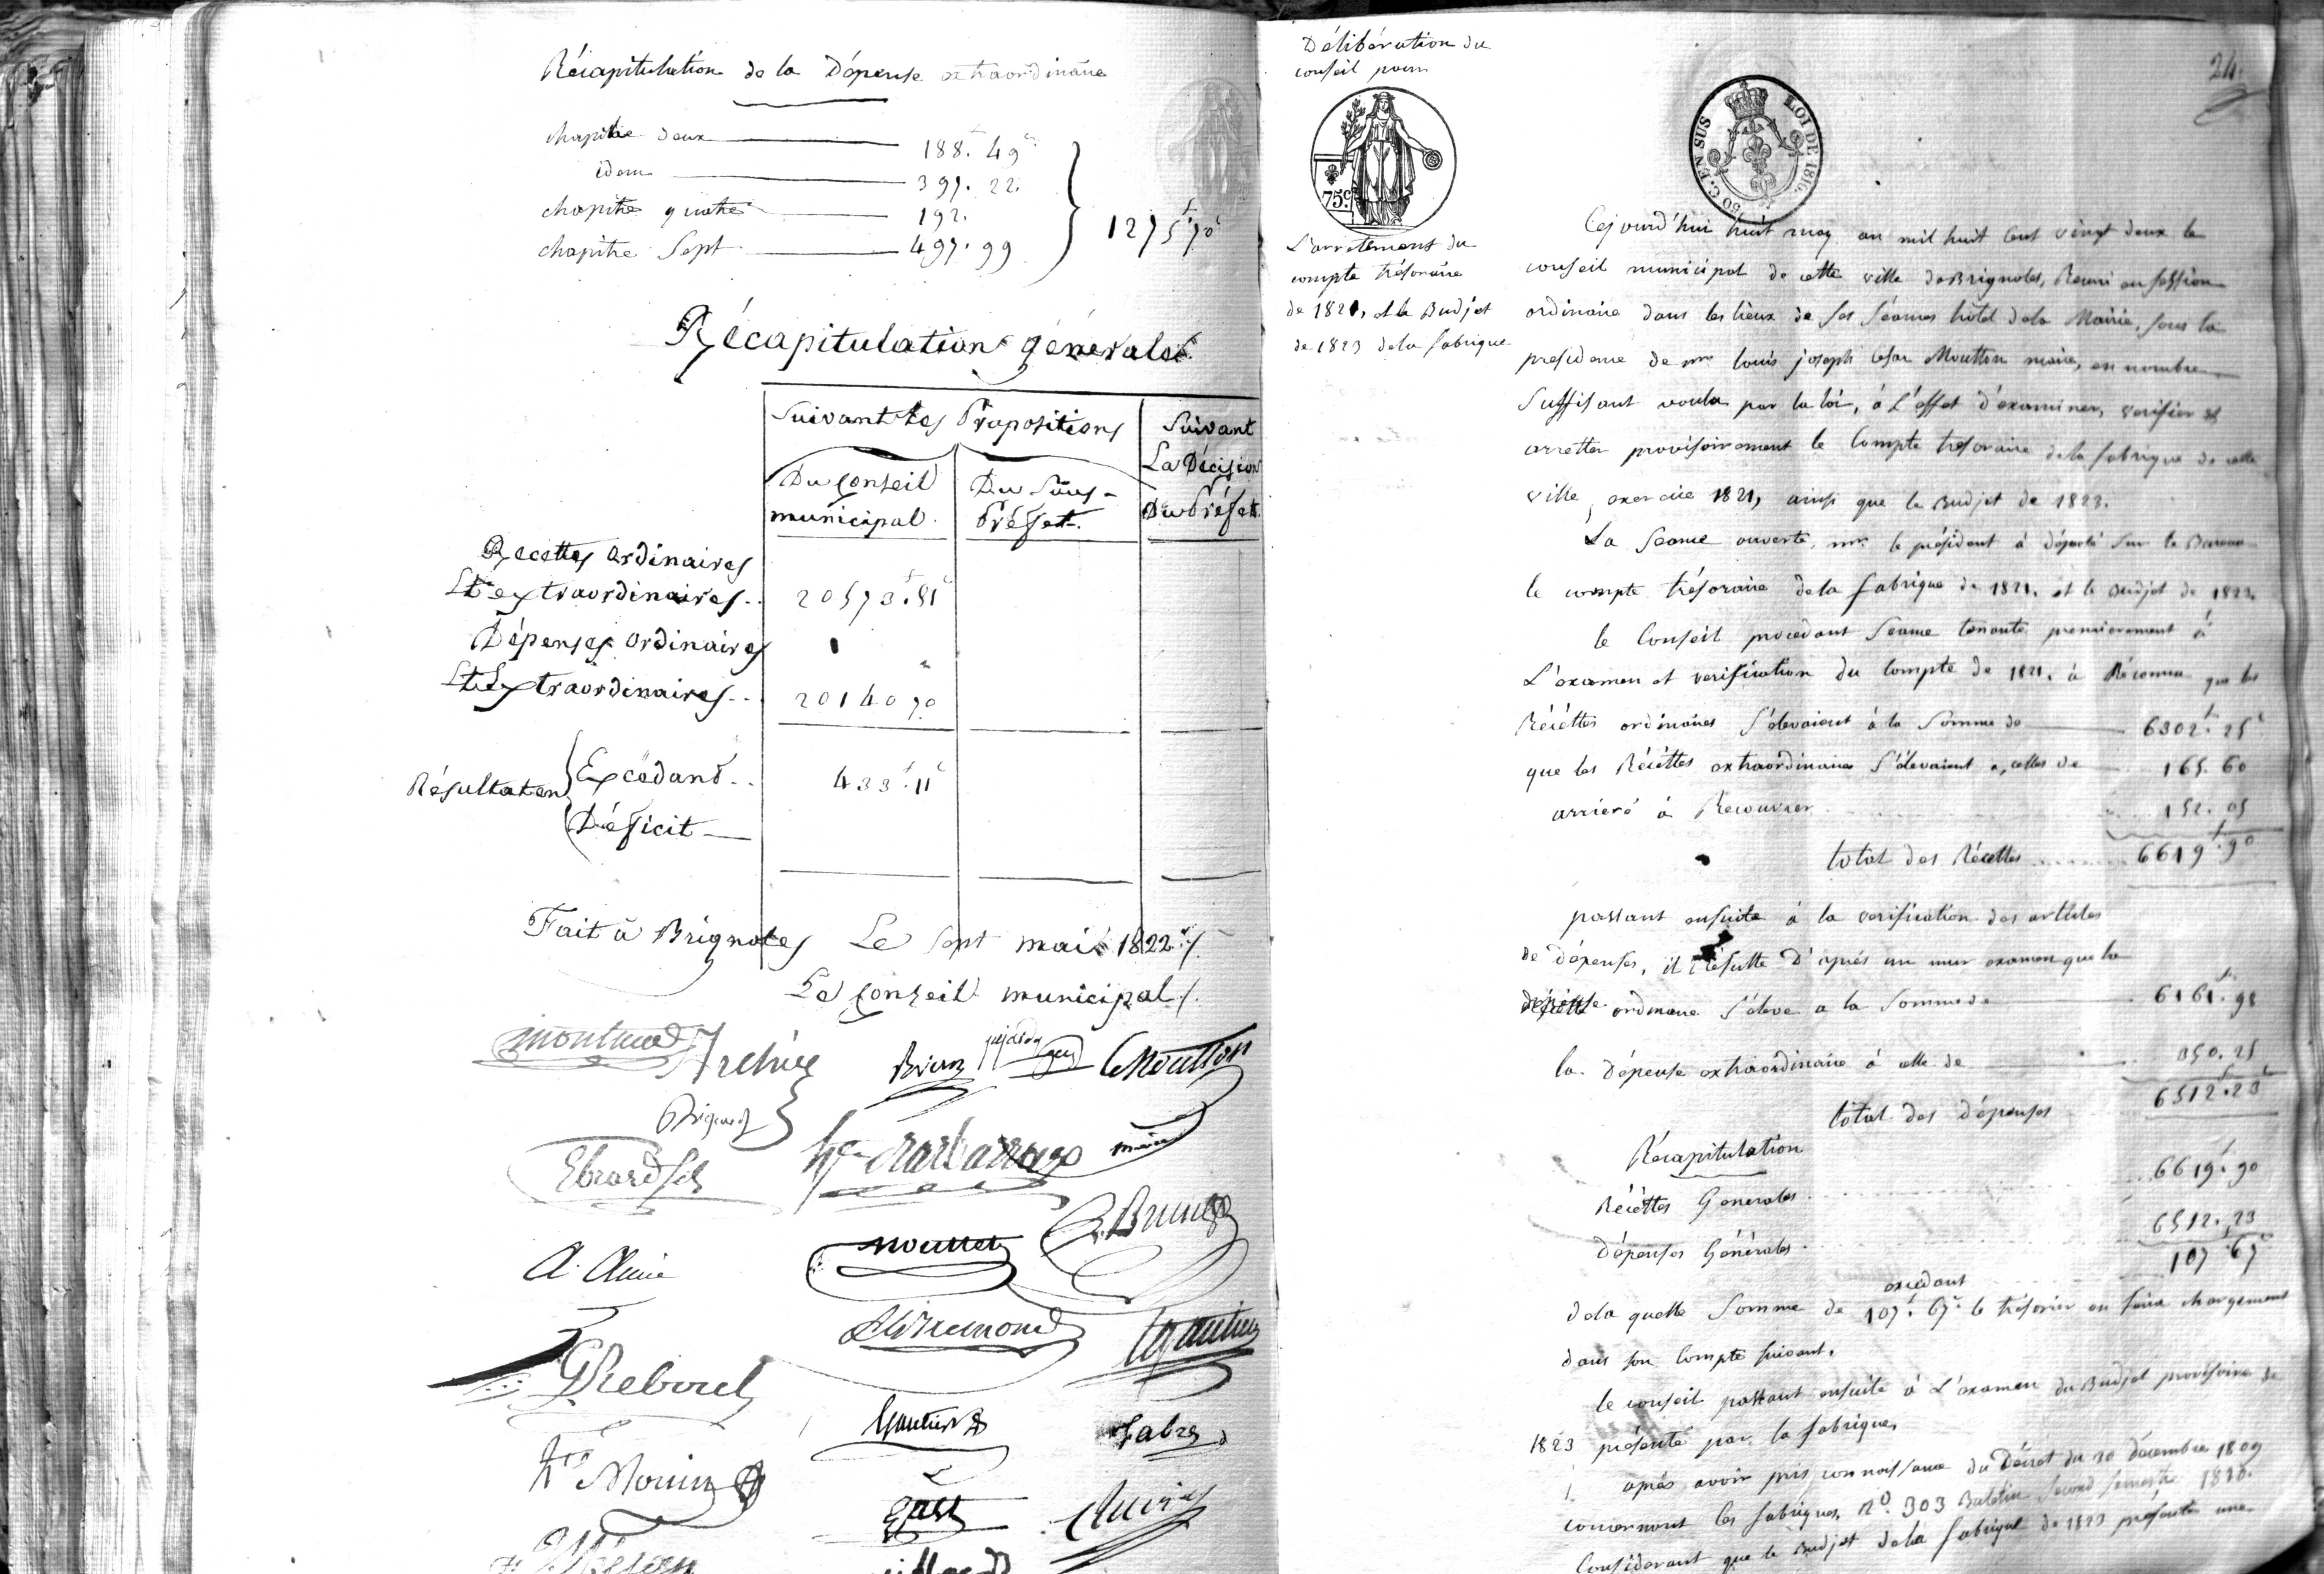 Récapitulation de la Dépense extraordinaire
chapitre deux 188. 49
idem 397. 22.
chapitre quatre 192.
chapitre Sept 497. 99
1275f 70c
Récapitulation générale
Suivant les Propositions
Du Conseil municipal.
Du Sous-Préfet.
Suivant La Décision Du Préfet
Recettes ordinaires
Et extraordinaires.. 20573f. 81c
Dépenses ordinaires
Et Extraordinaires.. 20140 70
Résultat en
Excédant.. 433f. 11c
Déficit
Fait à Brignoles Le Sept mai 1822 ./.
Le Conseil municipal /.
Moutton
maire
Ebrard fils
Barbaroux
Mouttet
Brunet
G Reboul
Gautier
Fabre
Délibération du
conseil pour
75c.
L'arrettement du
compte trésoraire
de 1821, et le Budjet
de 1823 de la fabrique
24.
50 C. EN SUS
LOI DE 1816.
Cejourd'hui huit may an mil huit Cent vingt deux le
conseil municipal de cette ville de Brignoles, Reuni en session
ordinaire dans les lieux de ses séances hôtel de la Mairie, sous la
presidence de mr. louis joseph Cesar Moutton maire, en nombre
Suffisant voulu par la loi, à L'effet d'examiner, verifier et
arretter provisoirement le Compte trésoraire de la fabrique de cette
ville, exercice 1821, ainsi que le Budjet de 1823.
La Seance ouverte, mr. le président à déposé sur le Bureau
le compte trésoraire de la fabrique de 1821. et le Budjet de 1823.
le Conseil procedant Seance tenante premierement à
L'examen et verification du Compte de 1821. à Réconnu que les
Réċettes ordinaires S'élevaient à la Somme de 6302f. 25c
que les Réċettes extraordinaires S'élevaient a, celles de 165. 60
arrieré à Recouvrer 152. 05
total des Récettes 6619f. 90
passant ensuite à la verification des articles
de dépenses, il résulte D'après un mur examen que la
dépense ordinaire s'éleve a la Somme de 6161f. 98
la Dépense extraordinaire à celle de 350. 25
total des dépenses 6512f. 23c
Récapitulation
Récettes Generales 6619f. 90
Dépenses Générales 6512. 23
excedant 107f 67c
de la quelle Somme de 107f. 67c. le trésorier en faira chargement
dans son Compte suivant.
le conseil passant ensuite à L'examen du Budjet provisoire de
1823 présenté par la fabrique,
après avoir pris connoissance du Décret du 30 décembre 1809
concernant les fabriques, No. 303 Buletin Second Semestre 1810.
Considerant que le Budjet de la fabrique de 1823 présente une